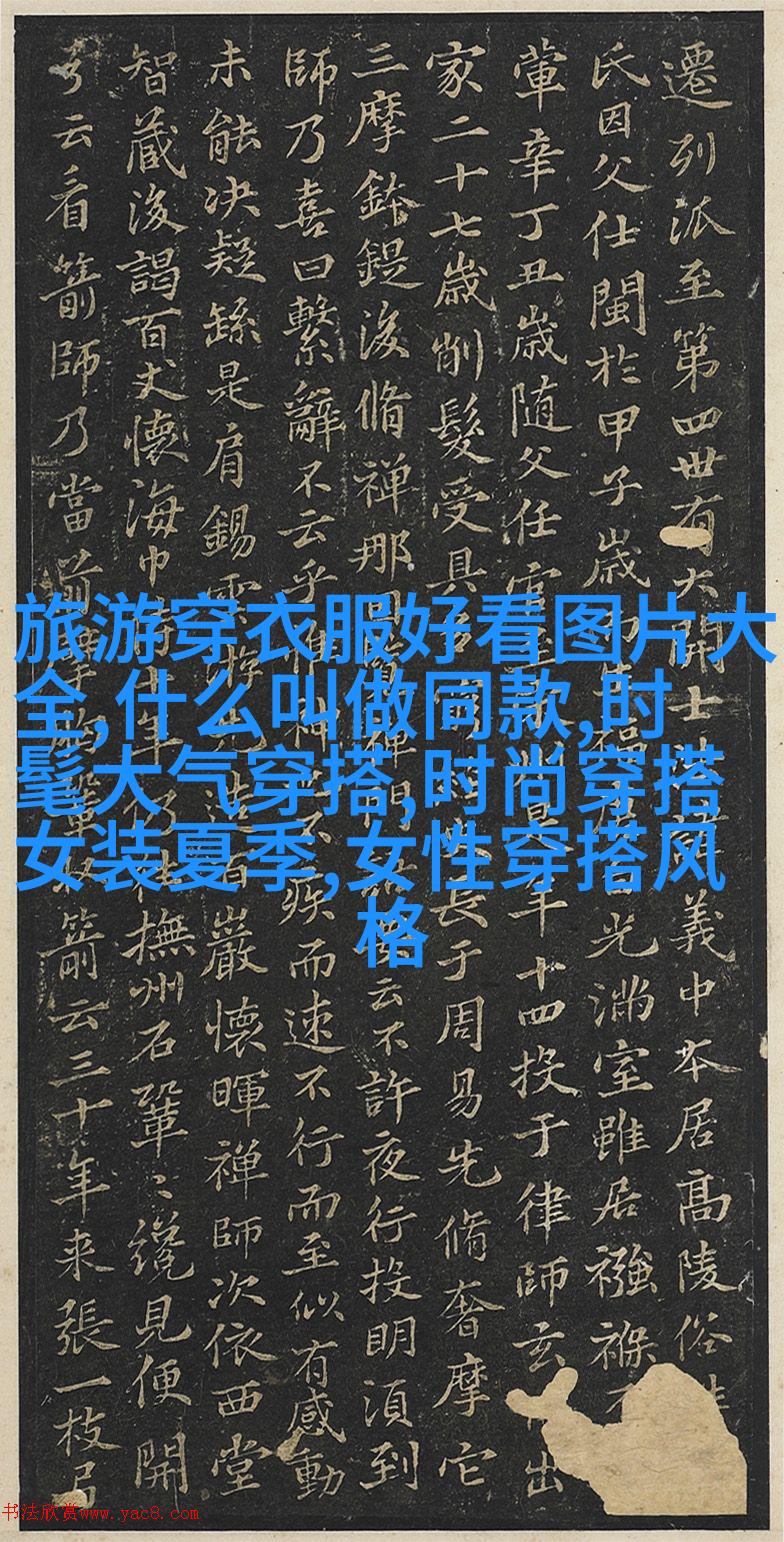 旅游穿衣服好看图片大
全,什么叫做同款,时
髦大气穿搭,时尚穿搭
女装夏季,女性穿搭风
格
遷列派至第四世有大開士諱義中本居高陵俗
氏因父仕閩於甲子歲光滿室雖居襁褓
葷辛丁丑歲随父任年十四投于律師玄出
家二十七歲削髮受具長于周易先脩奢摩它
三摩鉢鍉後脩禪那云不許夜行投明須到
師乃喜曰繫辭不云乎惟神疾而速不行而至似有感動
未能决疑繇是肩錫雲遊巖懷暉禅師次依西堂
智蔵後謁百丈懷海撫州石鞏〻纔見便開
弓云看箭師乃當前箭云三十年来張一枝弓
书法欣赏www.yac8.com